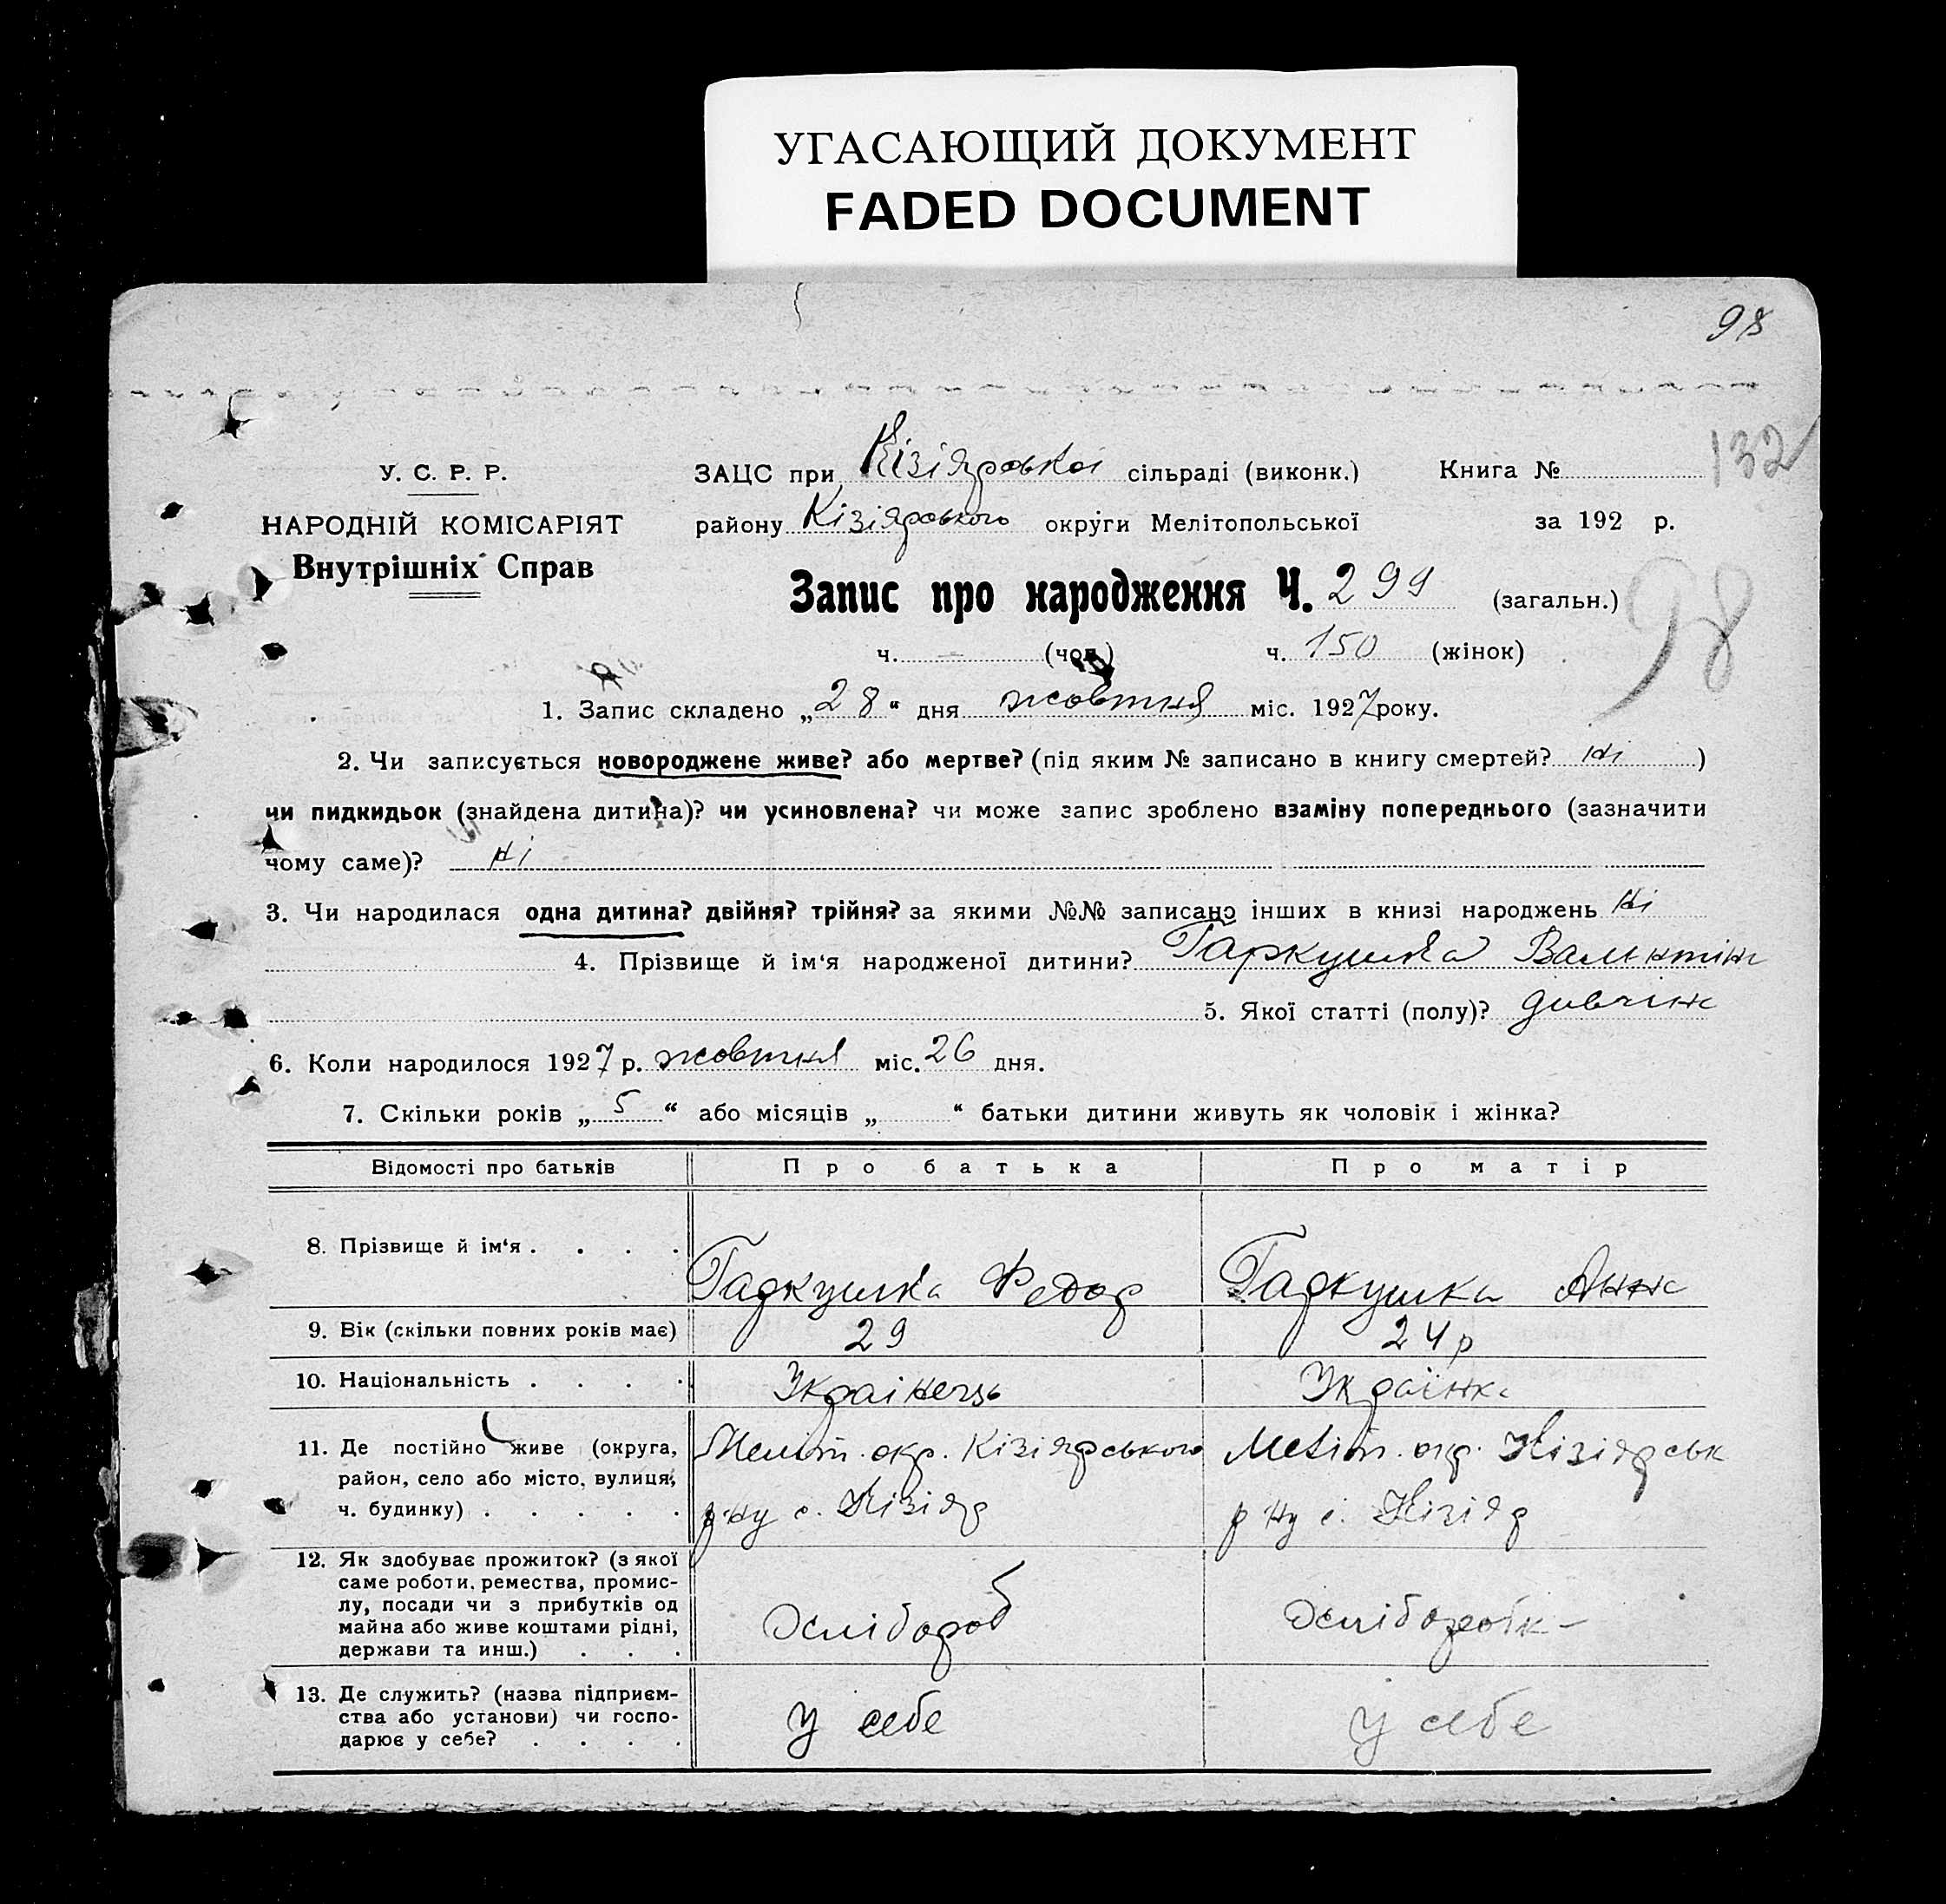 УГАСАЮЩИЙ ДОКУМЕНТ
FADED DOCUMENT
98
132
У. С. Р. Р.
НАРОДНІЙ КОМІСАРІЯТ
Внутрішніх Справ
ЗАЦС при Кізіярської сільраді (виконк.) Книга №
району Кізіярського округи Мелітопольської за 192 р.
Запис про народження Ч. 299 (загальн.)
98
ч. — (чол.) ч. 150 (жінок)
1. Запис складено „28“ дня жовтня міс. 1927 року.
2. Чи записується новороджене живе? або мертве? (під яким № записано в книгу смертей? Ні )
чи пидкидьок (знайдена дитина)? чи усиновлена? чи може запис зроблено взаміну попереднього (зазначити
чому саме)? Ні
3. Чи народилася одна дитина? двійня? трійня? за якими №№ записано інших в книзі народжень Ні
4. Прізвище й ім‘я народженої дитини? Гаркушка Валинтіна
5. Якої статті (полу)? дивчіна
6. Коли народилося 1927 р. жовтня міс. 26 дня.
7. Скільки років „ 5 “ або місяців „ “ батьки дитини живуть як чоловік і жінка?
Відомості про батьків Про батька Про матір
8. Прізвище й ім‘я . . . . Гаркушка Федор Гаркушка Анна
9. Вік (скільки повних років має) 29 24 р
10. Національність . . . . Українець Українка
11. Де постійно живе (округа, Меліт. окр. Кізіярського Меліт. окр. Кізіярськ
район, село або місто, вулиця,
ч. будинку) . . . . . р-ну с. Кізіяр р-ну с. Кізіяр
12. Як здобуває прожиток? (з якої
саме роботи, ремества, промис-
лу, посади чи з прибутків од
майна або живе коштами рідні,
держави та инш.) . . .
Хлібороб Хліборобк
13. Де служить? (назва підприєм-
ства або установи) чи госпо-
дарює у себе? . . . .
У себе У себе